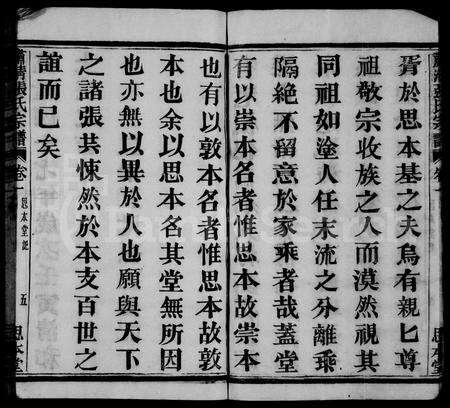 胥於思本基之夫烏有親匕尊
祖敬宗收族之人而漠然視其
同祖如塗人任末流之分離乘
隔絶不留意於家乘者哉蓋堂
有以崇本名者惟思本故崇本
也有以敦本名者惟思本故敦
本也余以思本名其堂無所因
也亦無以異於人也願與天下
之諸張共悚然於本支百世之
誼而已矣
張氏宗譜
卷一
思本堂記
五
思本堂